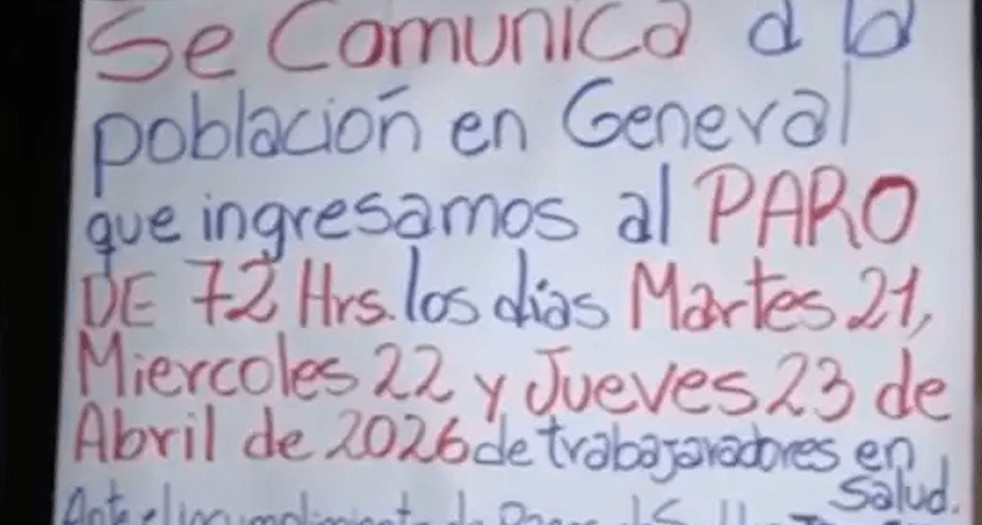 Se Comunica a la
población en General
que ingresamos al PARO
DE 72 Hrs. los días Martes 21,
Miercoles 22 y Jueves 23 de
Abril de 2026 de trabajaradores en
Salud.
Ante el incumplimiento de